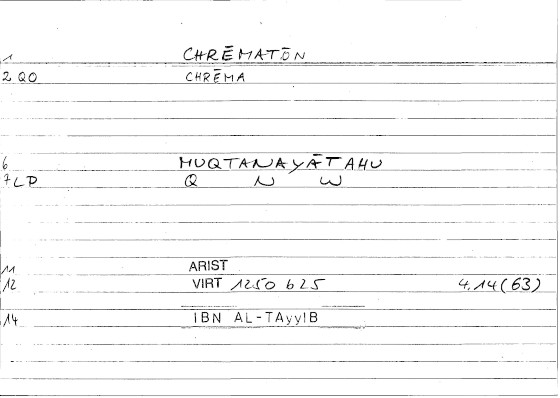 1 CHRĒMATŌN
2 QO CHRĒMA
6 MUQTANAYĀTAHU
7 LD Q N W
11 ARIST
12 VIRT 1250 b 25 4.14(63)
14 IBN AL-TAyyIB